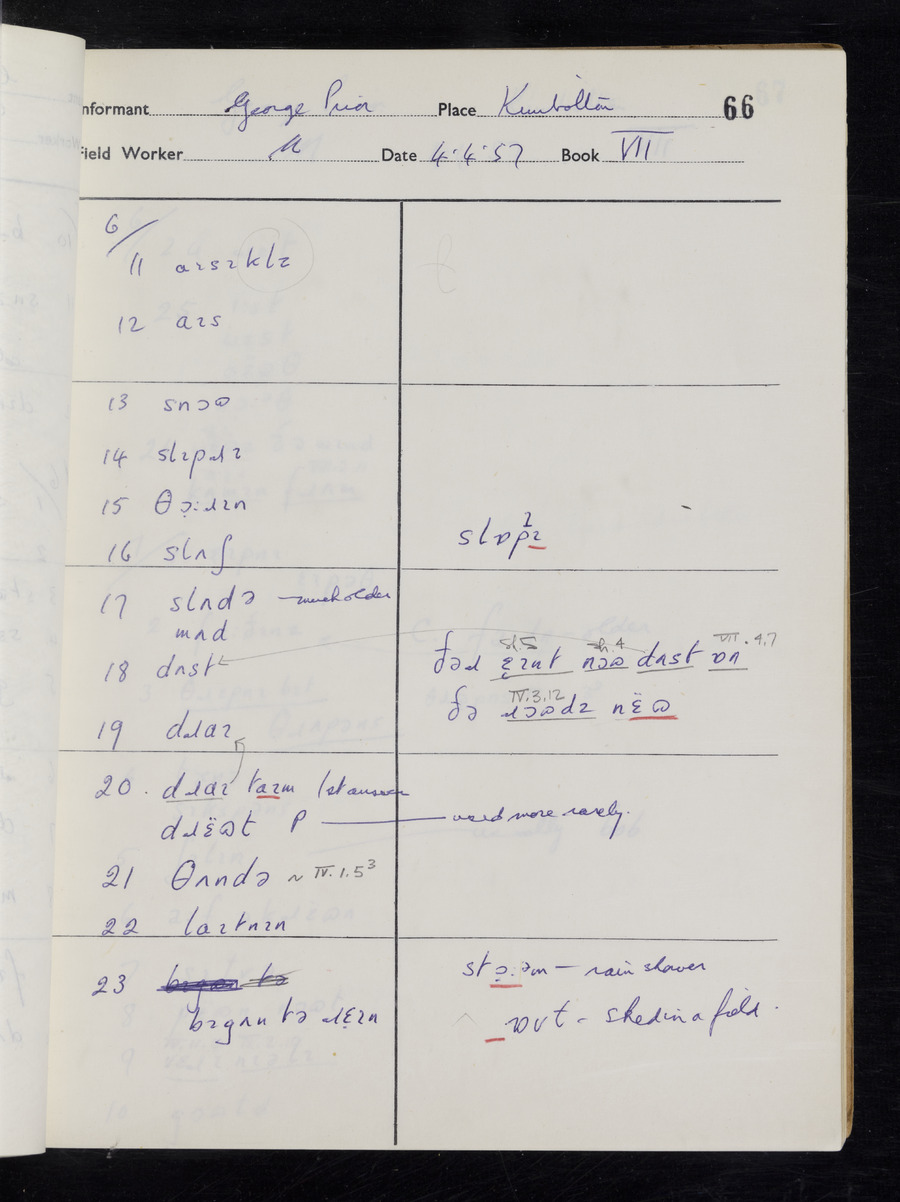 Informant George Prior Place Kimbolton 66
Field Worker Date 4.4.57 Book VII
6/
11 aɪsɪklɪ
12 aɪs
13 snɔʊ
14 slɪpɹɪ
15 θɔ̣:ɹɪn
16 slʌʃ slɒpɪ²
17 slʌdə — much older
mʌd
18 dʌst ðəɹ ɛ̣ɪnt nɔʊ dʌst ɒn VII.4,7
IV.3.12
ðə ɹɔʊdɪ nɛ̈ʊ
19 dɹaɪ
20. dɹaɪ taɪm 1st answer
dɹɛ̈ʊt P — used more rarely.
21 θʌndə ~ IV.1.5³
22 laɪtnɪn
23 bɪgʌn tə ɹɛ̣ɪn
stɔ̣:əm — rain shower
ɒʊt - shed in a field.